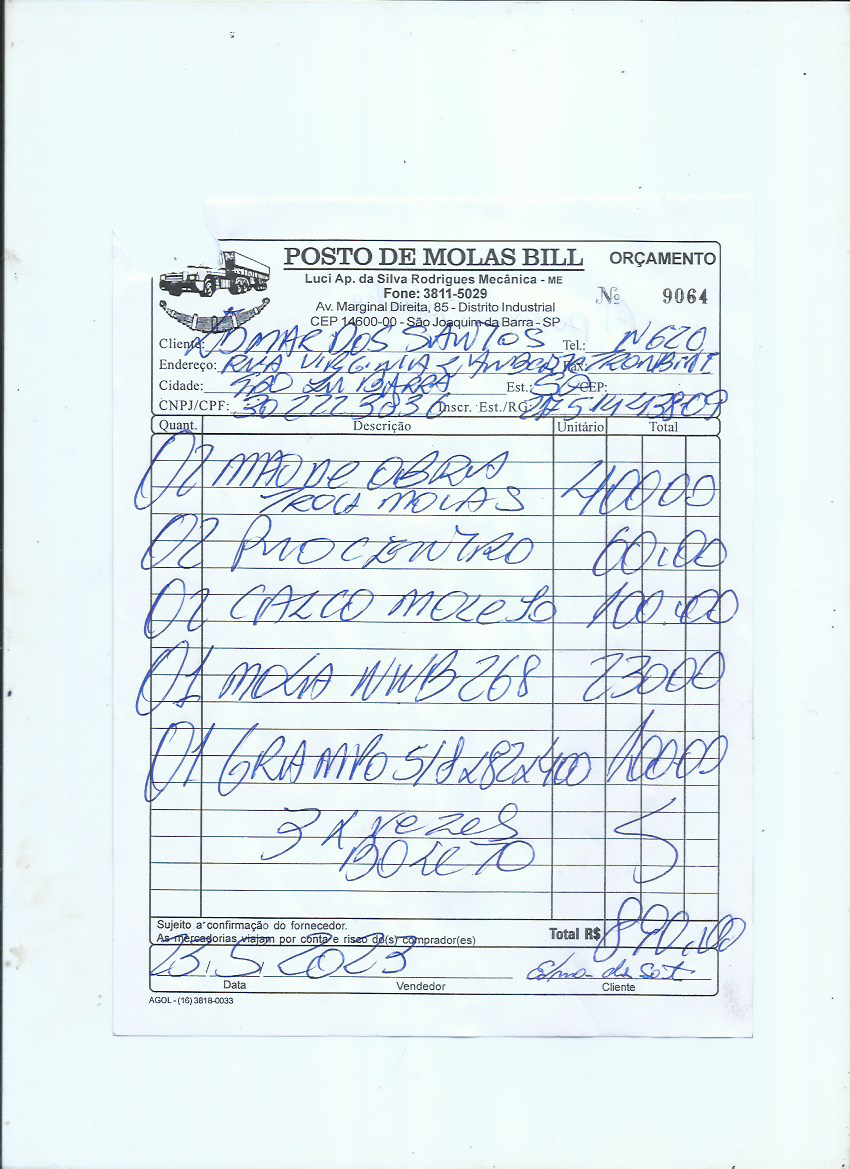 POSTO DE MOLAS BILL
ORÇAMENTO
Luci Ap. da Silva Rodrigues Mecânica - ME
Fone: 3811-5029
Nº 9064
Av. Marginal Direita, 85 - Distrito Industrial
CEP 14600-00 - São Joaquim da Barra - SP
Cliente: DOS SANTOS Tel.: N620
Endereço: RUA VIRGINIA Fax:
Cidade: SÃO BARRA Est.: SP CEP:
CNPJ/CPF: Inscr. Est./RG:
Quant. Descrição Unitário Total
02 MÃO DE OBRA
TROCA MOLAS 400 00
02 PINO CENTRO 60,00
02 CALCO MOLEJO 100,00
01 MOLA 268 230 00
01 GRAMPO 5/8x82x400 100 00
3 X VEZES
BOLETO
Sujeito a confirmação do fornecedor.
As mercadorias viajam por conta e risco do(s) comprador(es)
Total R$ 890,00
23.5.2023
Data Vendedor Cliente
AGOL - (16) 3818-0033